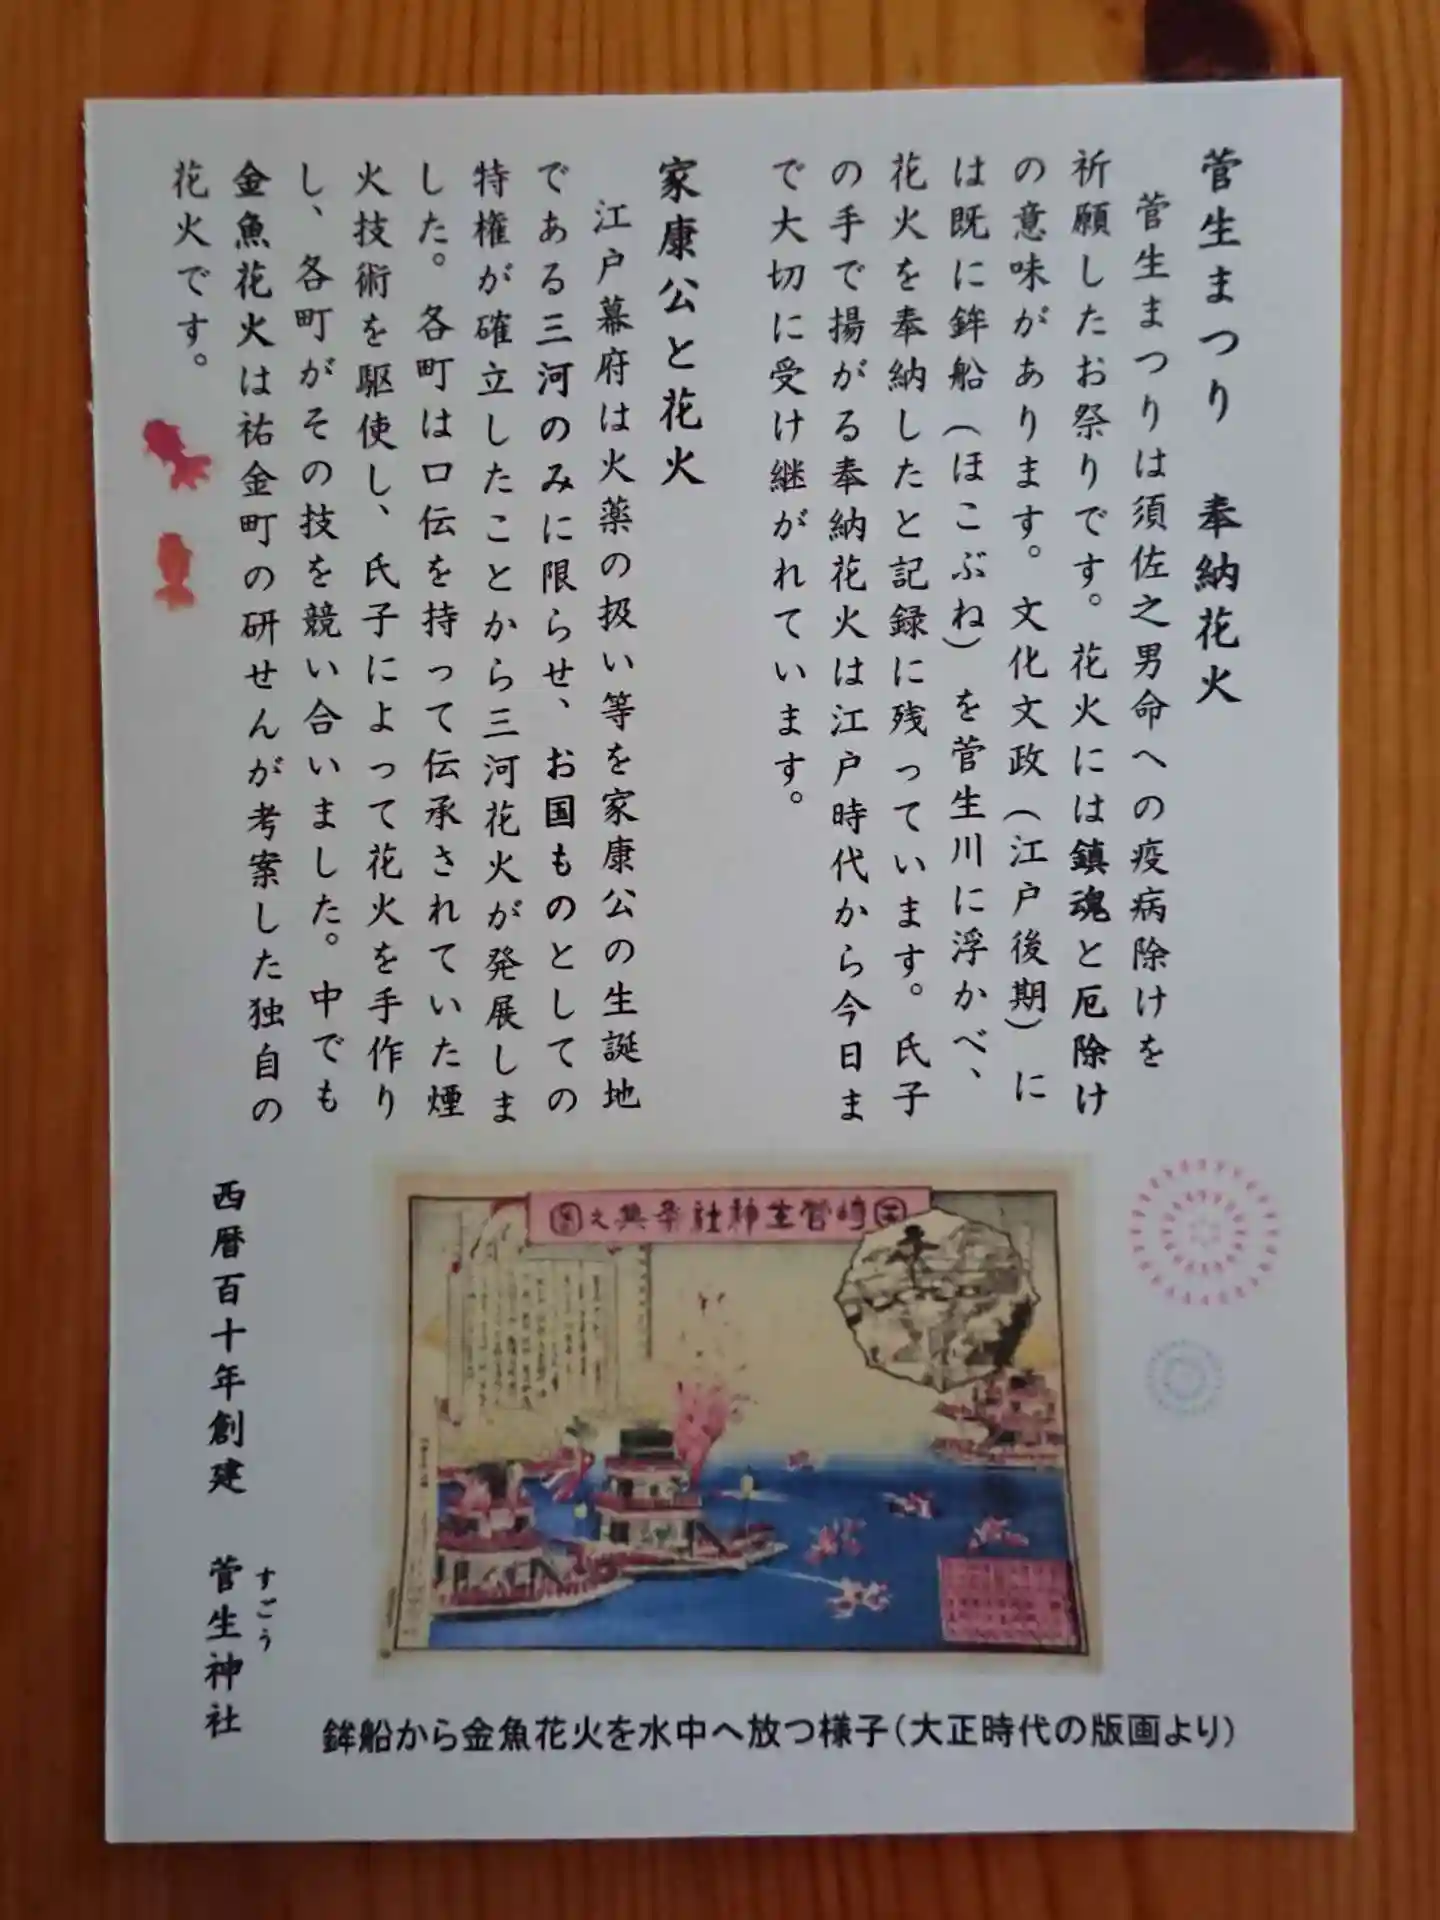 菅生まつり　奉納花火
菅生まつりは須佐之男命への疫病除けを
祈願したお祭りです。花火には鎮魂と厄除け
の意味があります。文化文政（江戸後期）に
は既に鉾船（ほこぶね）を菅生川に浮かべ、
花火を奉納したと記録に残っています。氏子
の手で揚がる奉納花火は江戸時代から今日ま
で大切に受け継がれています。
家康公と花火
江戸幕府は火薬の扱い等を家康公の生誕地
である三河のみに限らせ、お国ものとしての
特権が確立したことから三河花火が発展しま
した。各町は口伝を持って伝承されていた煙
火技術を駆使し、氏子によって花火を手作り
し、各町がその技を競い合いました。中でも
金魚花火は祐金町の研せんが考案した独自の
花火です。
崎菅生神社祭典之
鉾船から金魚花火を水中へ放つ様子（大正時代の版画より）
西暦百十年創建　菅生神社
すごう